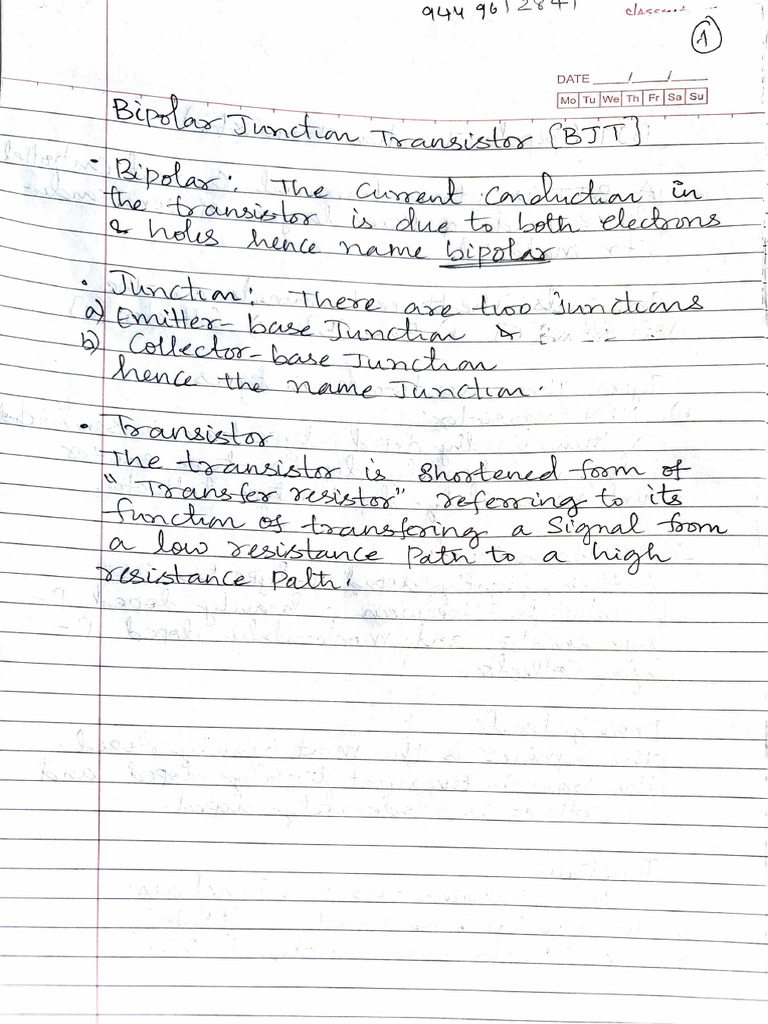 944 961284
1
DATE ___/___/___
Mo Tu We Th Fr Sa Su
Bipolar Junction Transistor [BJT]
• Bipolar: The current conduction in
the transistor is due to both electrons
& holes hence name bipolar
• Junction: There are two Junctions
a) Emitter-base Junction &
b) Collector-base Junction
hence the name Junction.
• Transistor
The transistor is shortened form of
"Transfer resistor" referring to its
function of transfering a signal from
a low resistance path to a high
resistance path.